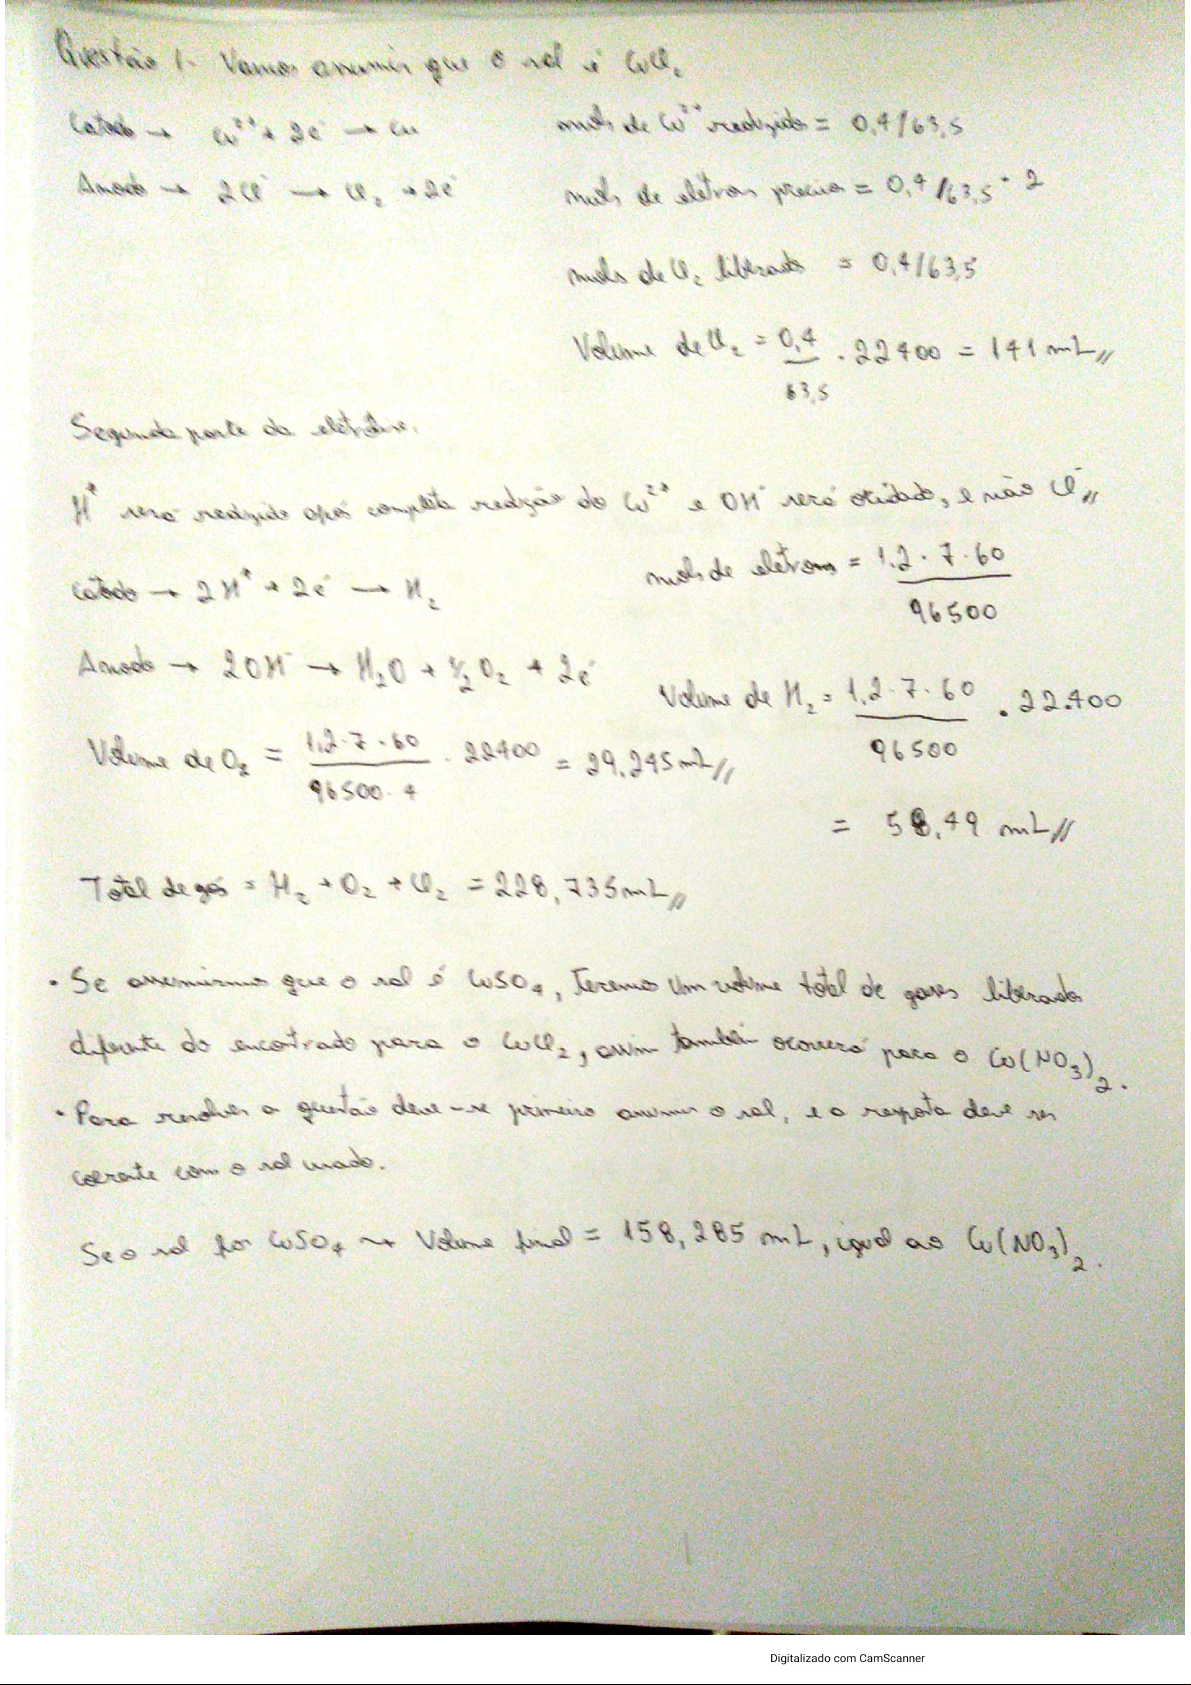 Questão 1. Vamos assumir que o sal é CuCl₂
Catodo → Cu²⁺ + 2e⁻ → Cu
mols de Cu²⁺ reduzido = 0,4/63,5
Anodo → 2Cl⁻ → Cl₂ + 2e⁻
mols de eletrons precisa = 0,4/63,5 · 2
mols de Cl₂ liberado = 0,4/63,5
Volume de Cl₂ = 0,4/63,5 . 22400 = 141 mL//
Segunda parte da eletrólise.
H⁺ será reduzido após completa redução do Cu²⁺ e OH⁻ será oxidado, e não Cl⁻//
mols de eletrons = 1.2 . 7 . 60 / 96500
Catodo → 2H⁺ + 2e⁻ → H₂
Anodo → 2OH⁻ → H₂O + ½O₂ + 2e⁻
Volume de H₂ = 1,2 . 7 . 60 / 96500 . 22.400
Volume de O₂ = 1,2 . 7 . 60 / 96500 . 4 . 22400 = 29,245 mL//
= 58,49 mL//
Total de gás = H₂ + O₂ + Cl₂ = 228,735 mL//
• Se assumirmos que o sal é CuSO₄, teremos um volume total de gases liberados
diferente do encontrado para o CuCl₂, assim também ocorrerá para o Cu(NO₃)₂.
• Para resolver a questão deve-se primeiro assumir o sal, e a resposta deve ser
coerente com o sal usado.
Se o sal for CuSO₄ → Volume final = 158,285 mL, igual ao Cu(NO₃)₂.
Digitalizado com CamScanner